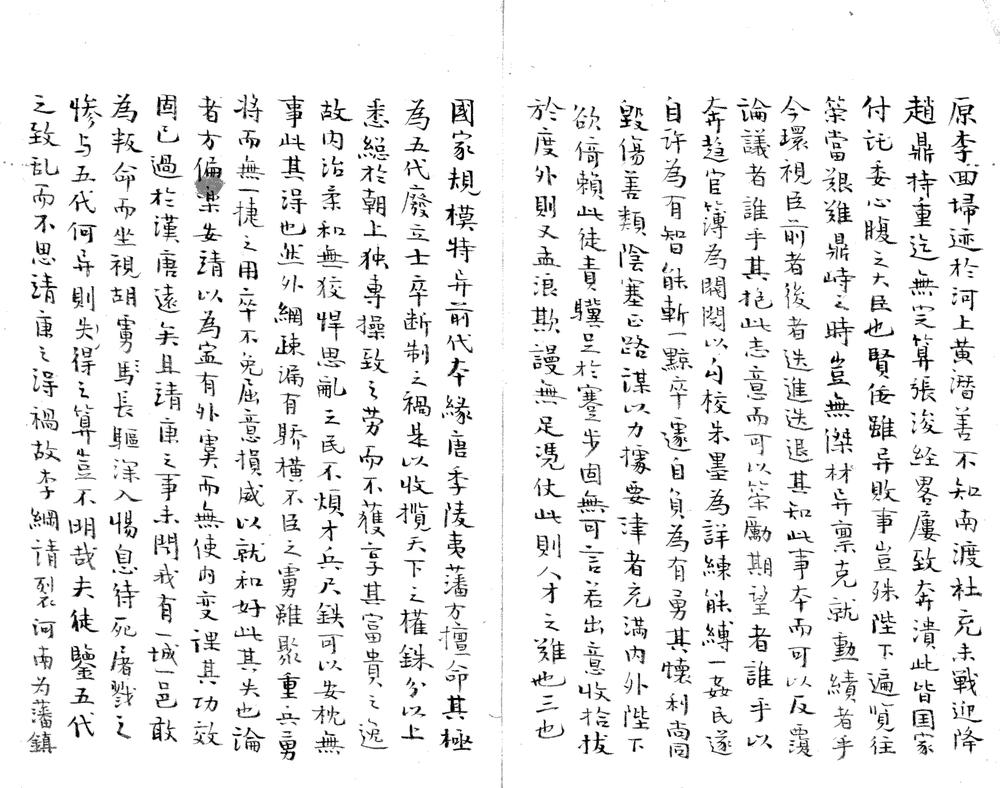 原李回埽迹於河上黃潛善不知南渡杜充未戰迎降
趙鼎持重迄無定算張浚经畧屢致奔潰此皆国家
付託委心腹之大臣也賢佞雖异敗事豈殊陛下遍覽往
策當艱難鼎峙之時豈無傑材异禀克就勳績者乎
今環視臣前者後者迭進迭退其知此事夲而可以反覆
論議者誰乎其抱此志意而可以策勵期望者誰乎以
奔趨官簿為閥閱以勾校朱墨為詳練能縛一姦民遂
自许為有智能斬一黥卒遽自負為有勇其懷利尚同
毀傷善類陰塞正路謀以力據要津者充滿内外陛下
欲倚賴此徒責驥足於蹇步固無可言若出意收拾拔
於度外則又孟浪欺謾無足憑仗此則人才之难也三也
國家規模特异前代夲緣唐季陵夷藩方擅命其極
為五代廢立士卒断制之禍是以收攬天下之權銖分以上
悉緫於朝上独專操致之劳而下獲享其富貴之逸
故内治柔和無狡悍思亂之民不煩才兵尺鉄可以安枕無
事此其淂也然外網疎漏有驕橫不臣之虜雖聚重兵勇
將而無一捷之用卒不免屈意損威以就和好此其失也論
者方偏樂安靖以為寍有外虞而無使内变课其功效
固已過於漢唐遠矣且靖康之事未聞我有一城一邑敢
為叛命而坐視胡虜馬長驅深入惕息待死屠戮之
惨与五代何异則失得之算豈不明哉夫徒鑒五代
之致乱而不思靖康之淂禍故李綱請裂河南为藩鎮